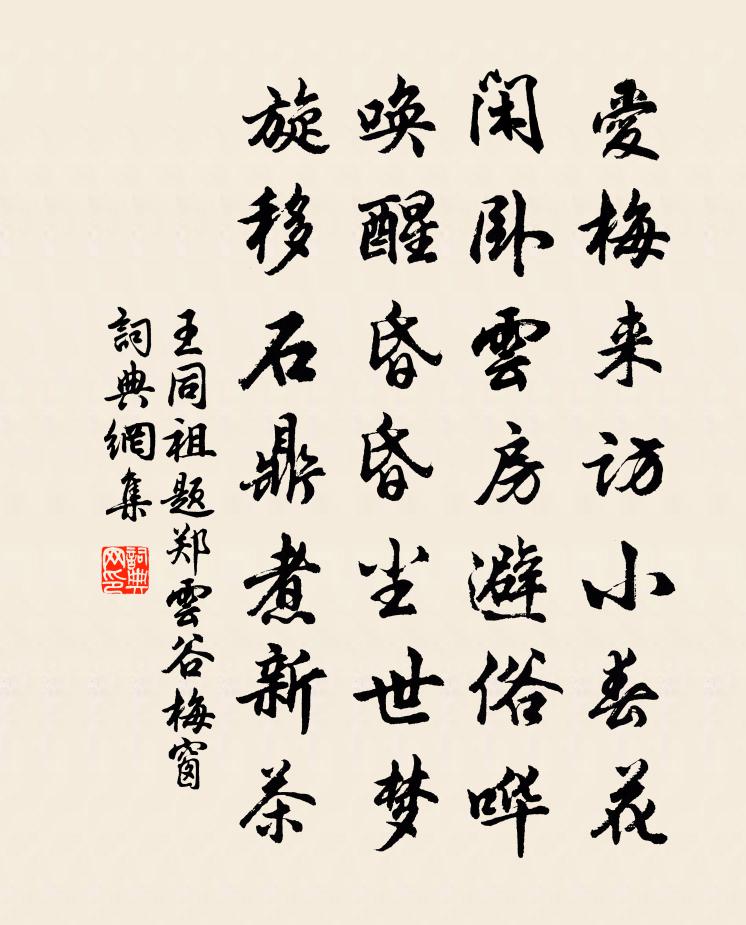 愛梅来访小春花
閑卧雲房避俗哗
唤醒昏昏尘世梦
旋移石鼎煮新茶
王同祖题郑雲谷梅窗
詞典網集
詞典网印